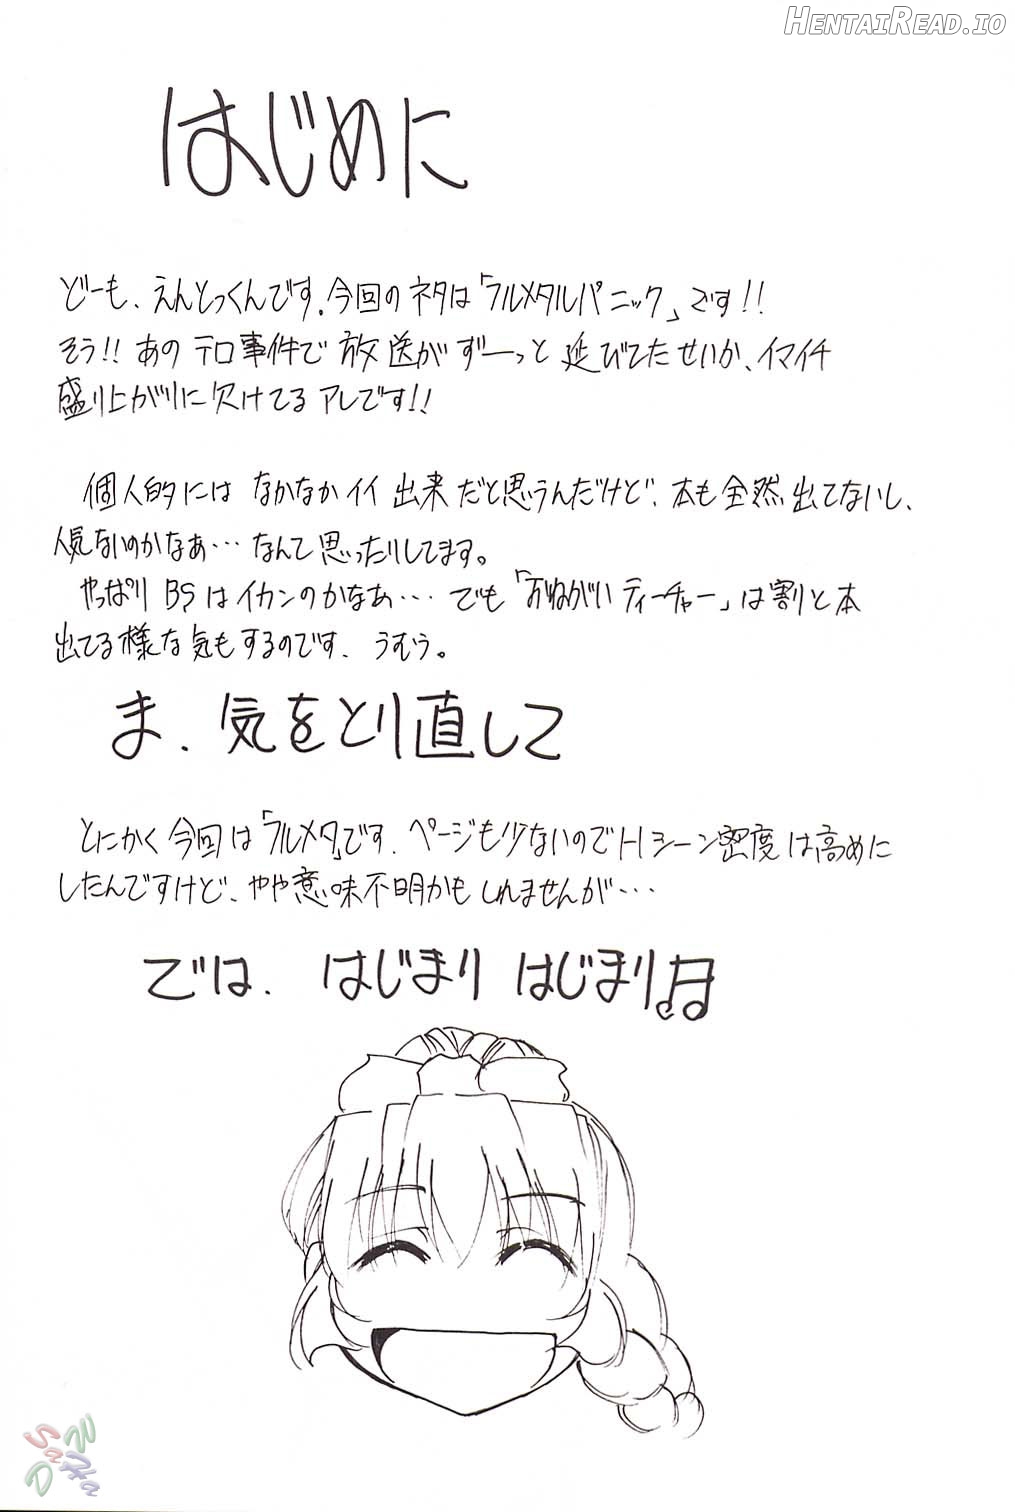 HENTAIREAD.IO
はじめに
どーも、えんとっくんです。今回のネタは「フルメタルパニック」です!!
そう!!あのテロ事件で放送がずーっと延びてたせいか、イマイチ
盛り上がりに欠けてるアレです!!
個人的にはなかなかイイ出来だと思うんだけど、本も全然出てないし、
人気ないのかなあ…なんて思ったりしてます。
やっぱりBSはイカンのかなあ…でも「おねがいティーチャー」は割と本
出てる様な気もするのです、うむう。
ま、気をとり直して
とにかく今回は「フルメタ」です、ページも少ないのでHシーン密度は高めに
したんですけど、やや意味不明かもしれませんが…
では、はじまりはじまり♫
SaHa